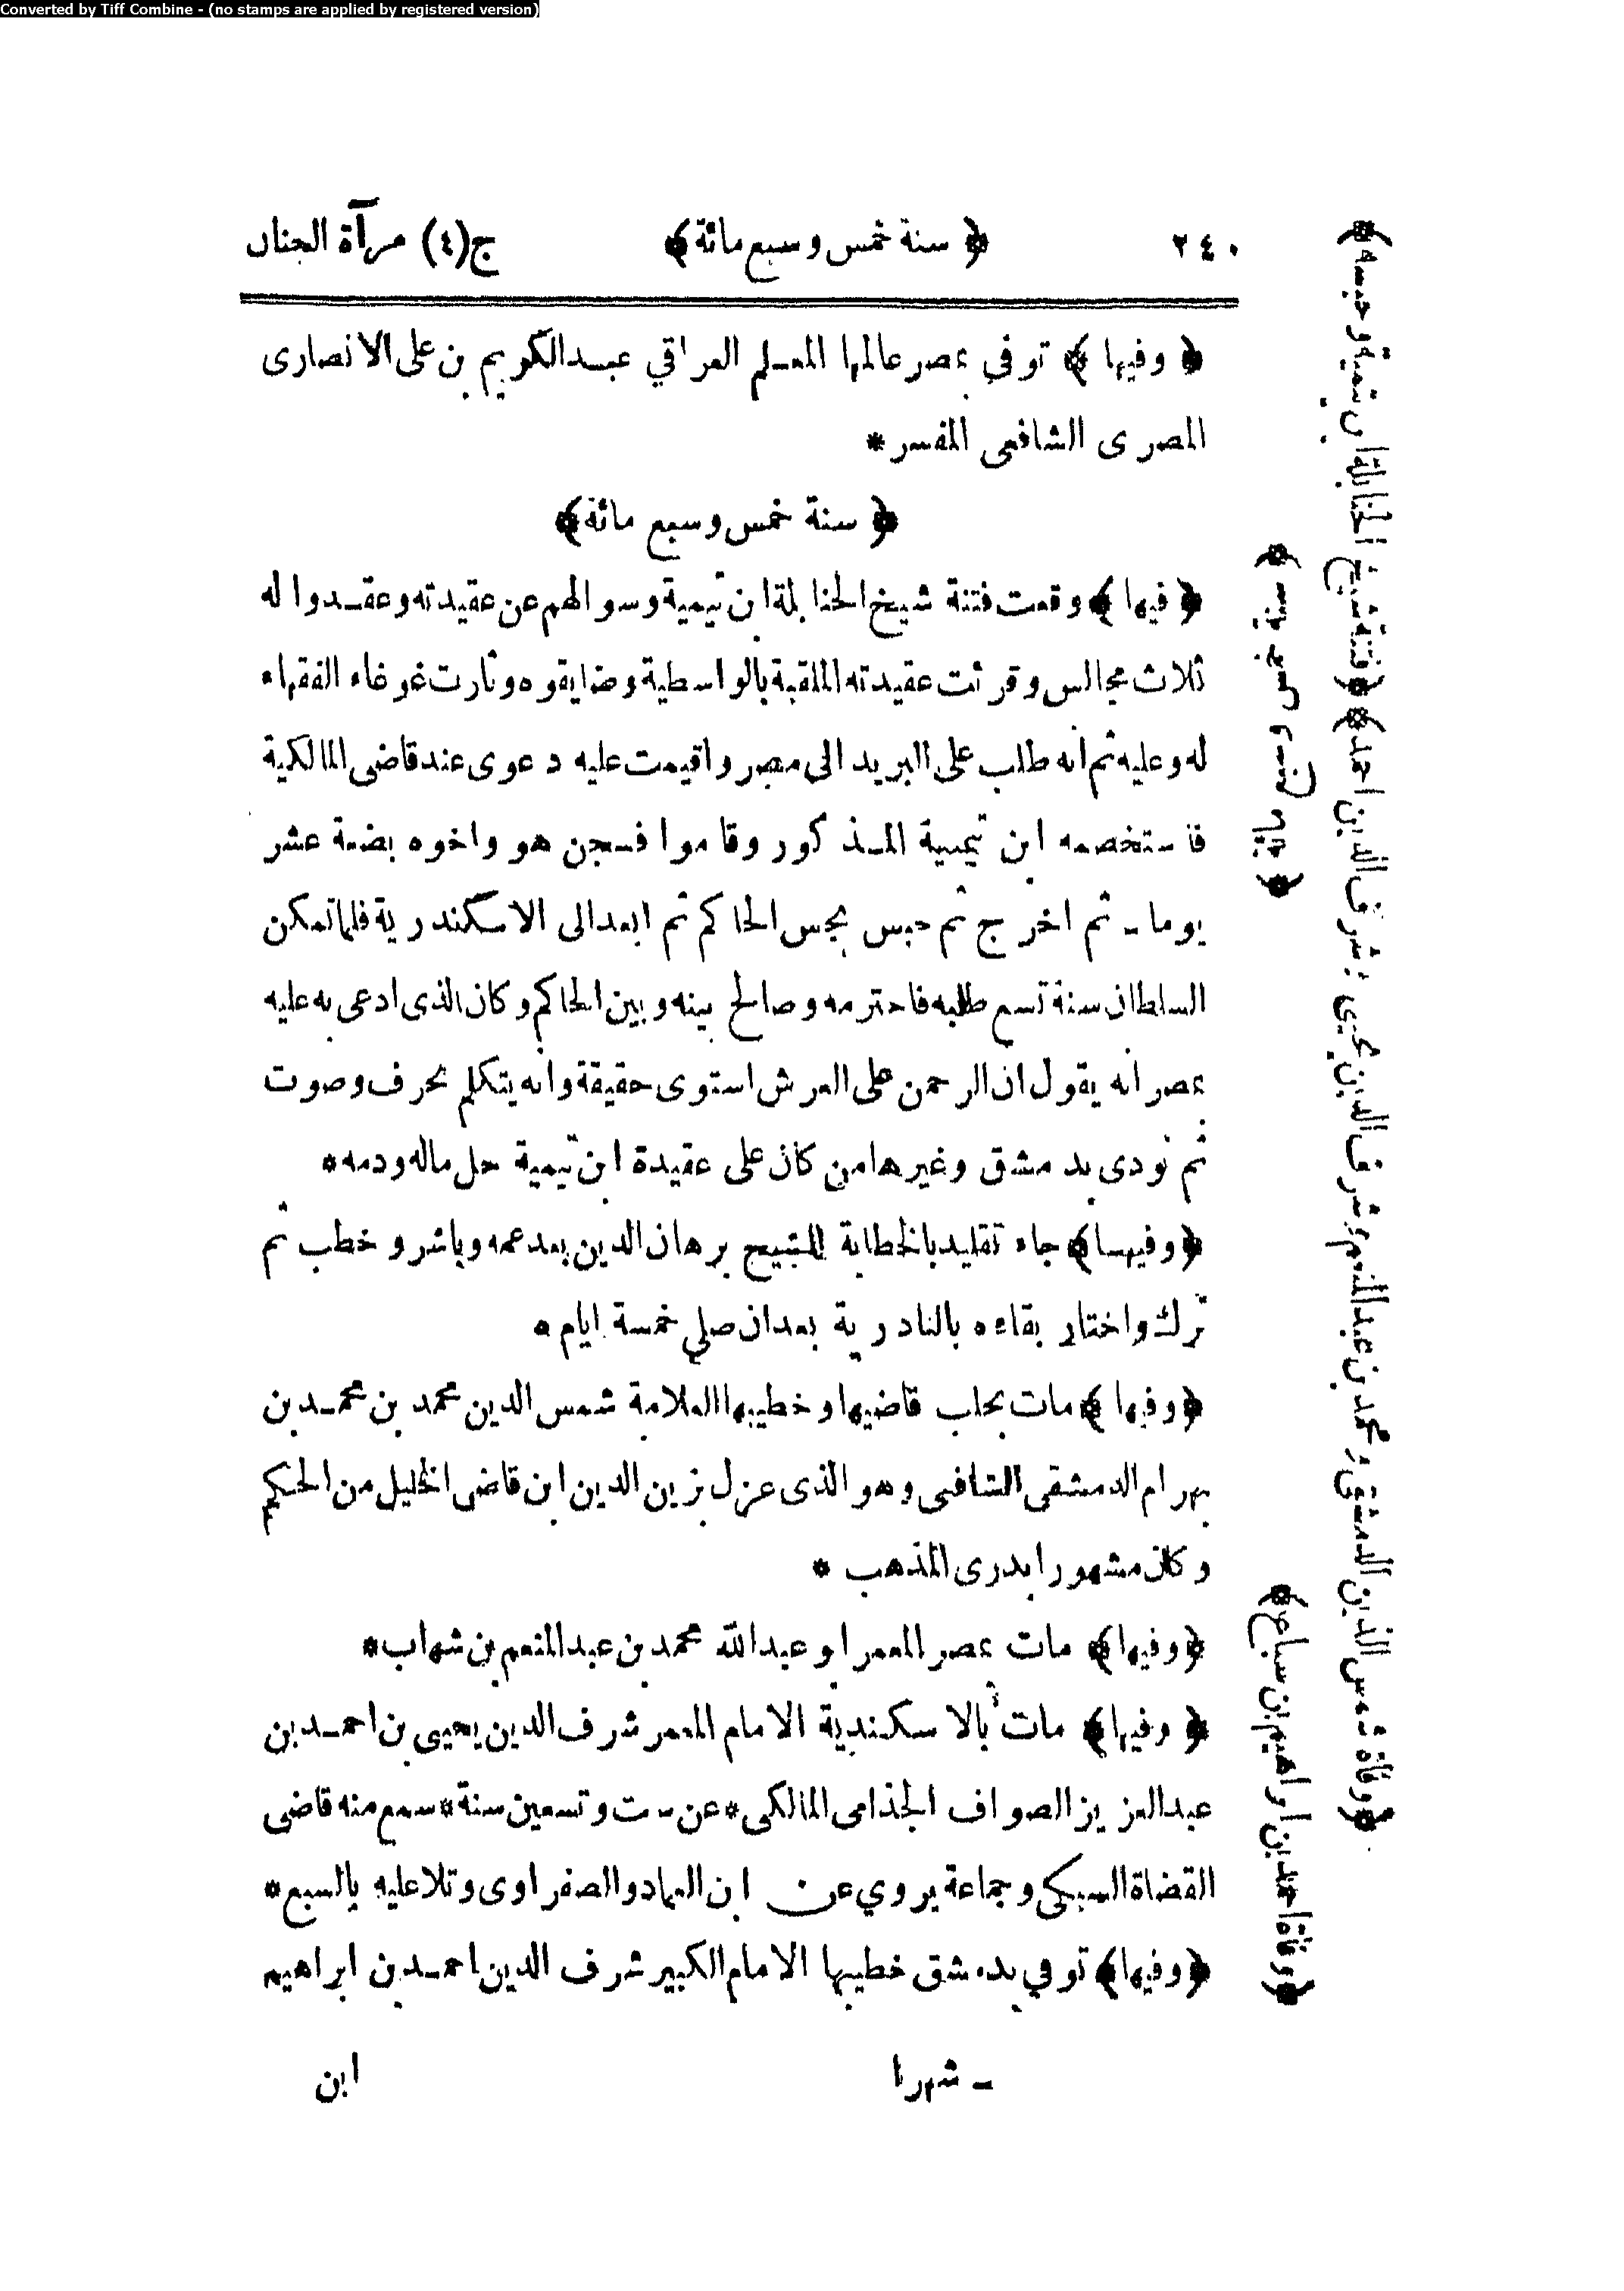 Converted by Tiff Combine - (no stamps are applied by registered version)
٢٤٠ ﴿ سنة خمس وسبع مائة ﴾ ج(٤) مرآة الجنان
﴿ وفيها ﴾ توفي بمصر عالمها المعلم العراقي عبد الكريم بن على الانصارى
المصرى الشافعى المفسر *
﴿ سنة خمس وسبع مائة ﴾
﴿ فيها ﴾ وقعت فتنة شيخ الحنابلة ابن تيمية وسوالهم عن عقيدته وعقدوا له
ثلاث مجالس وقرئت عقيدته الملقبة بالواسطية وضايقوه وثارت غوغاء الفقهاء
له وعليه ثم انه طلب على البريد الى مصر واقيمت عليه دعوى عند قاضى المالكية
فاستخصمه ابن تيمية المذكور وقاموا فسجن هو واخوه بضعة عشر
يوما ـ ثم اخرج ثم حبس بحبس الحاكم ثم ابعد الى الاسكندرية فلما تمكن
السلطان سنة تسع طلبه فاحترمه وصالح بينه وبين الحاكم وكان الذى ادعى به عليه
بمصر انه يقول ان الرحمن على العرش استوى حقيقة وانه يتكلم بحرف وصوت
ثم نودى بدمشق وغيرها من كان على عقيدة ابن تيمية حل ماله ودمه *
﴿ وفيها ﴾ جاء تقليد بالخطابة للشيخ برهان الدين بعد عمه وباشر وخطب ثم
ترك واختار بقاءه بالنادرية بعد ان صلي خمسة ايام *
﴿ وفيها ﴾ مات بحلب قاضيها وخطيبها العلامة شمس الدين محمد بن محمد بن
بهرام الدمشقى الشافعى وهو الذى عزل بزين الدين ابن قاضى الخليل من الحكم
وكان مشهورا بدرى المذهب *
﴿ وفيها ﴾ مات بمصر المعمر ابو عبد الله محمد بن عبد المنعم بن شهاب *
﴿ وفيها ﴾ مات بالاسكندية الامام المعمر شرف الدين يحيى بن احمد بن
عبد العزيز الصواف الجذامى المالكى * عن ست وتسعين سنة * سمع منه قاضى
القضاة السبكى وجماعة يروي عن ابن العماد والصفراوى وتلا عليه بالسبع *
﴿ وفيها ﴾ توفي بدمشق خطيبها الامام الكبير شرف الدين احمد بن ابراهيم
ـ شهرا
ابن
﴿ فتنة شيخ الحنابلة ابن تيمية وحبسه ﴾
﴿ وفاة شمس الدين الدمشقى و محمد بن عبد المنعم و شرف الدين يحيى و شرف الدين احمد ﴾
﴿ وفاة احمد بن ابراهيم بن سباع ﴾